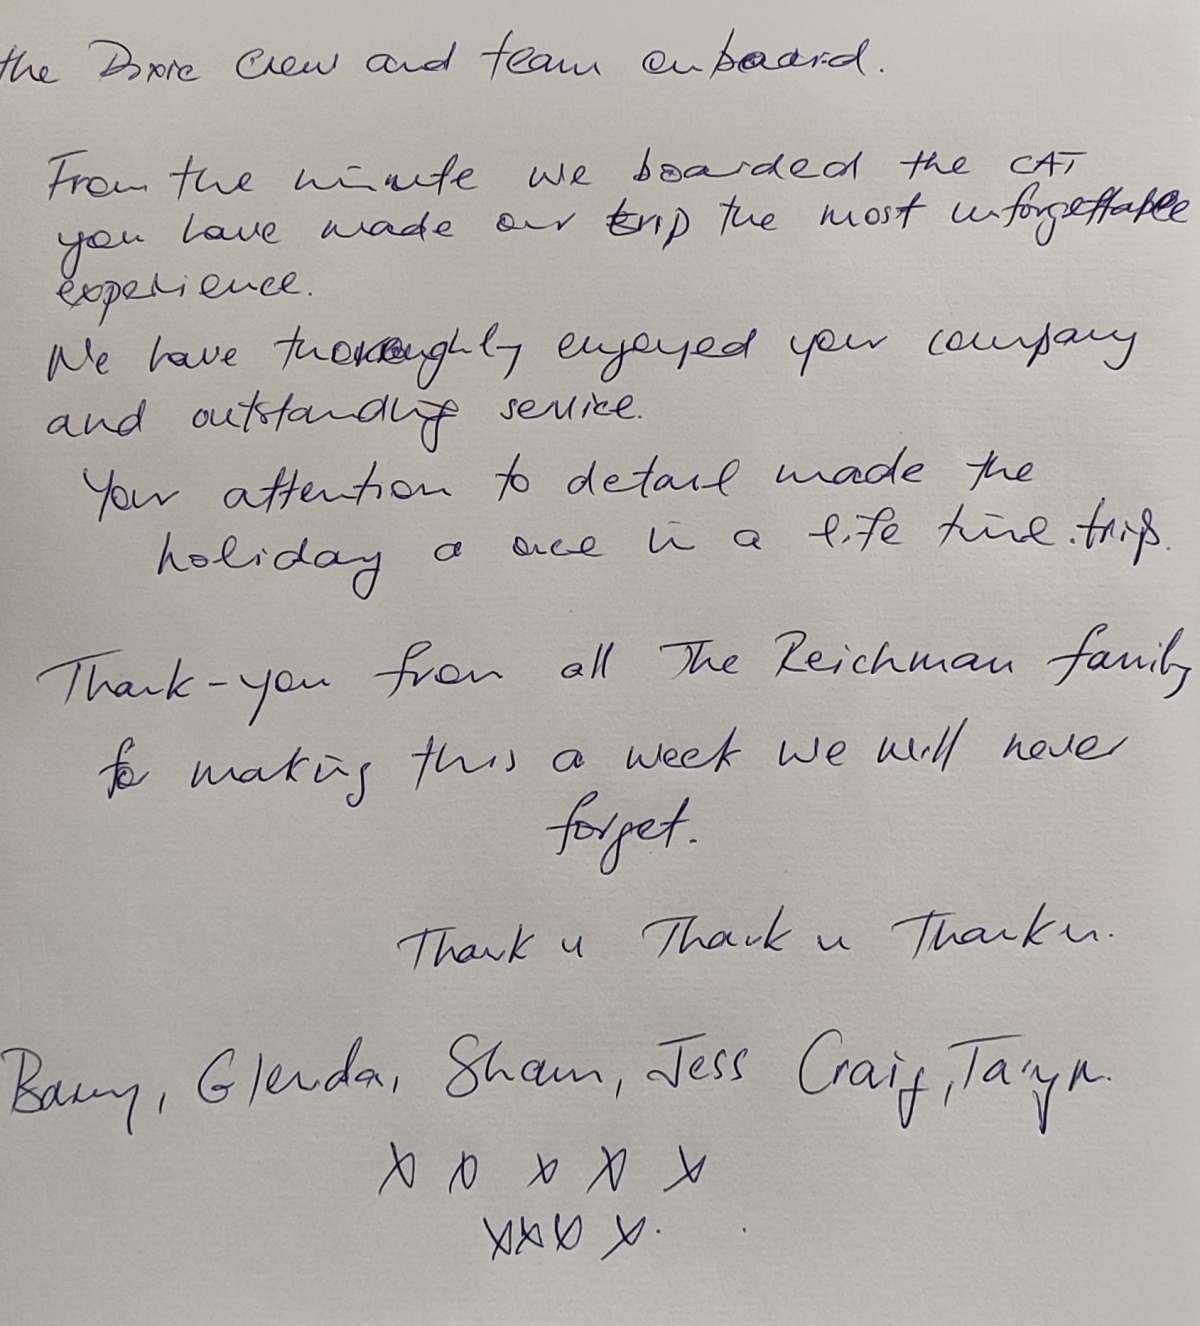 the Dixie Crew and team onboard.
From the minute we boarded the CAT
you have made our trip the most unforgettable
experience.
We have thoroughly enjoyed your company
and outstanding service.
Your attention to detail made the
holiday a once in a life time trip.
Thank-you from all The Reichman family
for making this a week we will never
forget.
Thank u Thank u Thank u.
Barry, Glenda, Shaun, Jess Craig, Taryn.
x x x x x
xxx x.